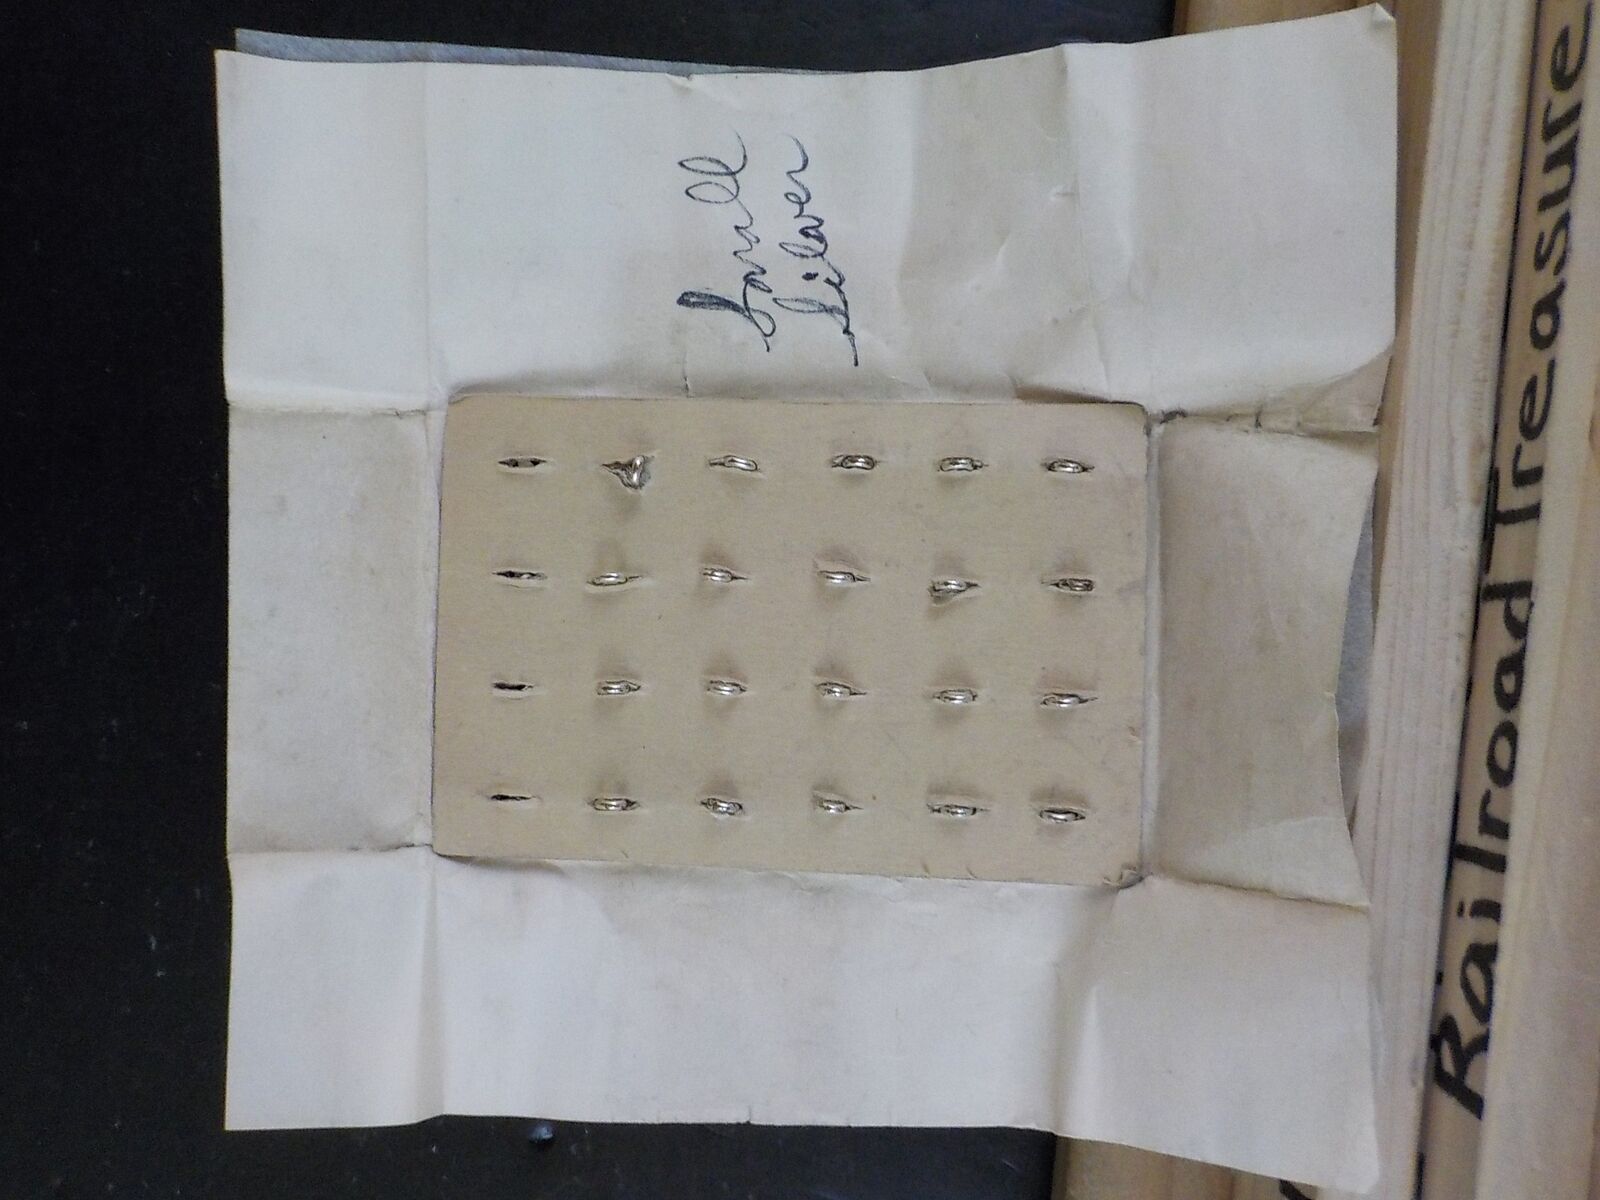 Small
Silver
Railroad Treasure